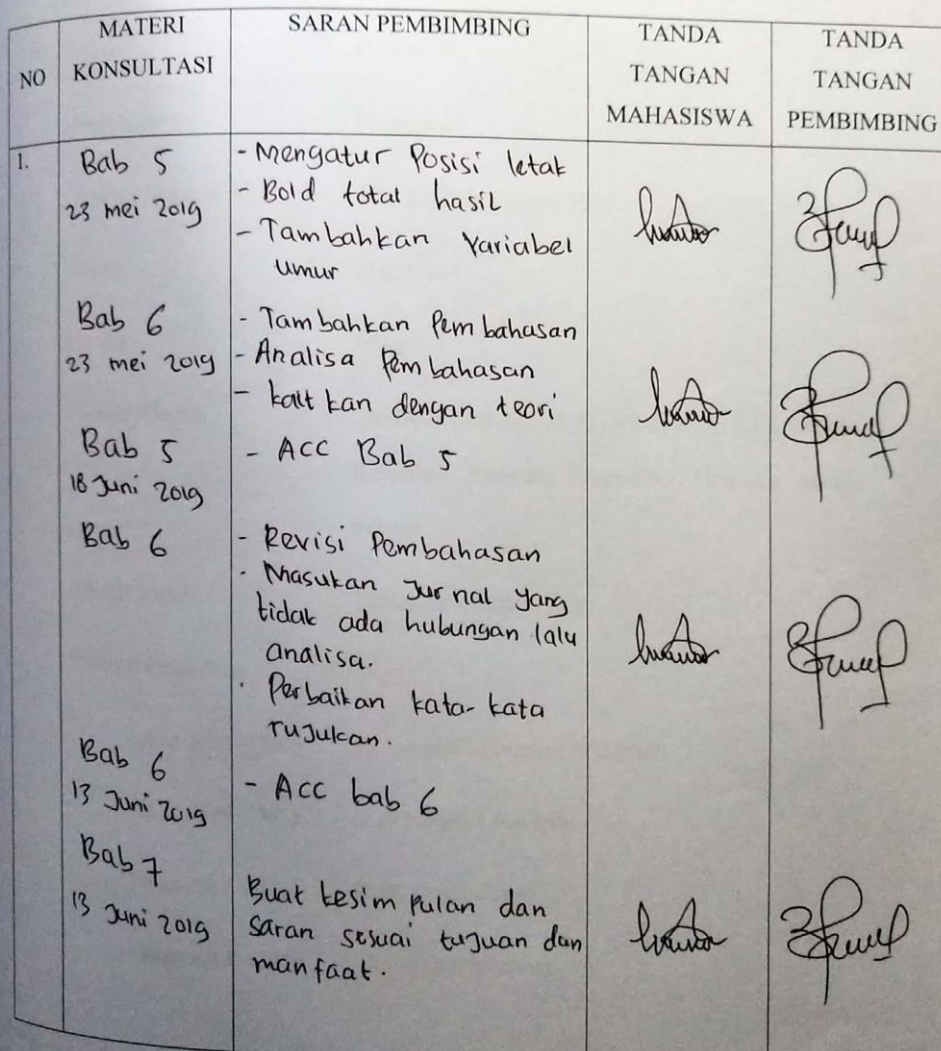 NO
MATERI
KONSULTASI
SARAN PEMBIMBING
TANDA
TANGAN
MAHASISWA
TANDA
TANGAN
PEMBIMBING
1.
Bab 5
23 mei 2019
- Mengatur Posisi letak
- Bold total hasil
- Tambahkan Variabel
umur
Bab 6
23 mei 2019
- Tambahkan Pembahasan
- Analisa Pembahasan
- kaitkan dengan teori
Bab 5
18 Juni 2019
- ACC Bab 5
Bab 6
- Revisi Pembahasan
- Masukan Jurnal yang
tidak ada hubungan lalu
analisa.
- Perbaikan kata-kata
rujukan.
Bab 6
13 Juni 2019
- ACC bab 6
Bab 7
13 Juni 2019
Buat kesimpulan dan
saran sesuai tujuan dan
manfaat.